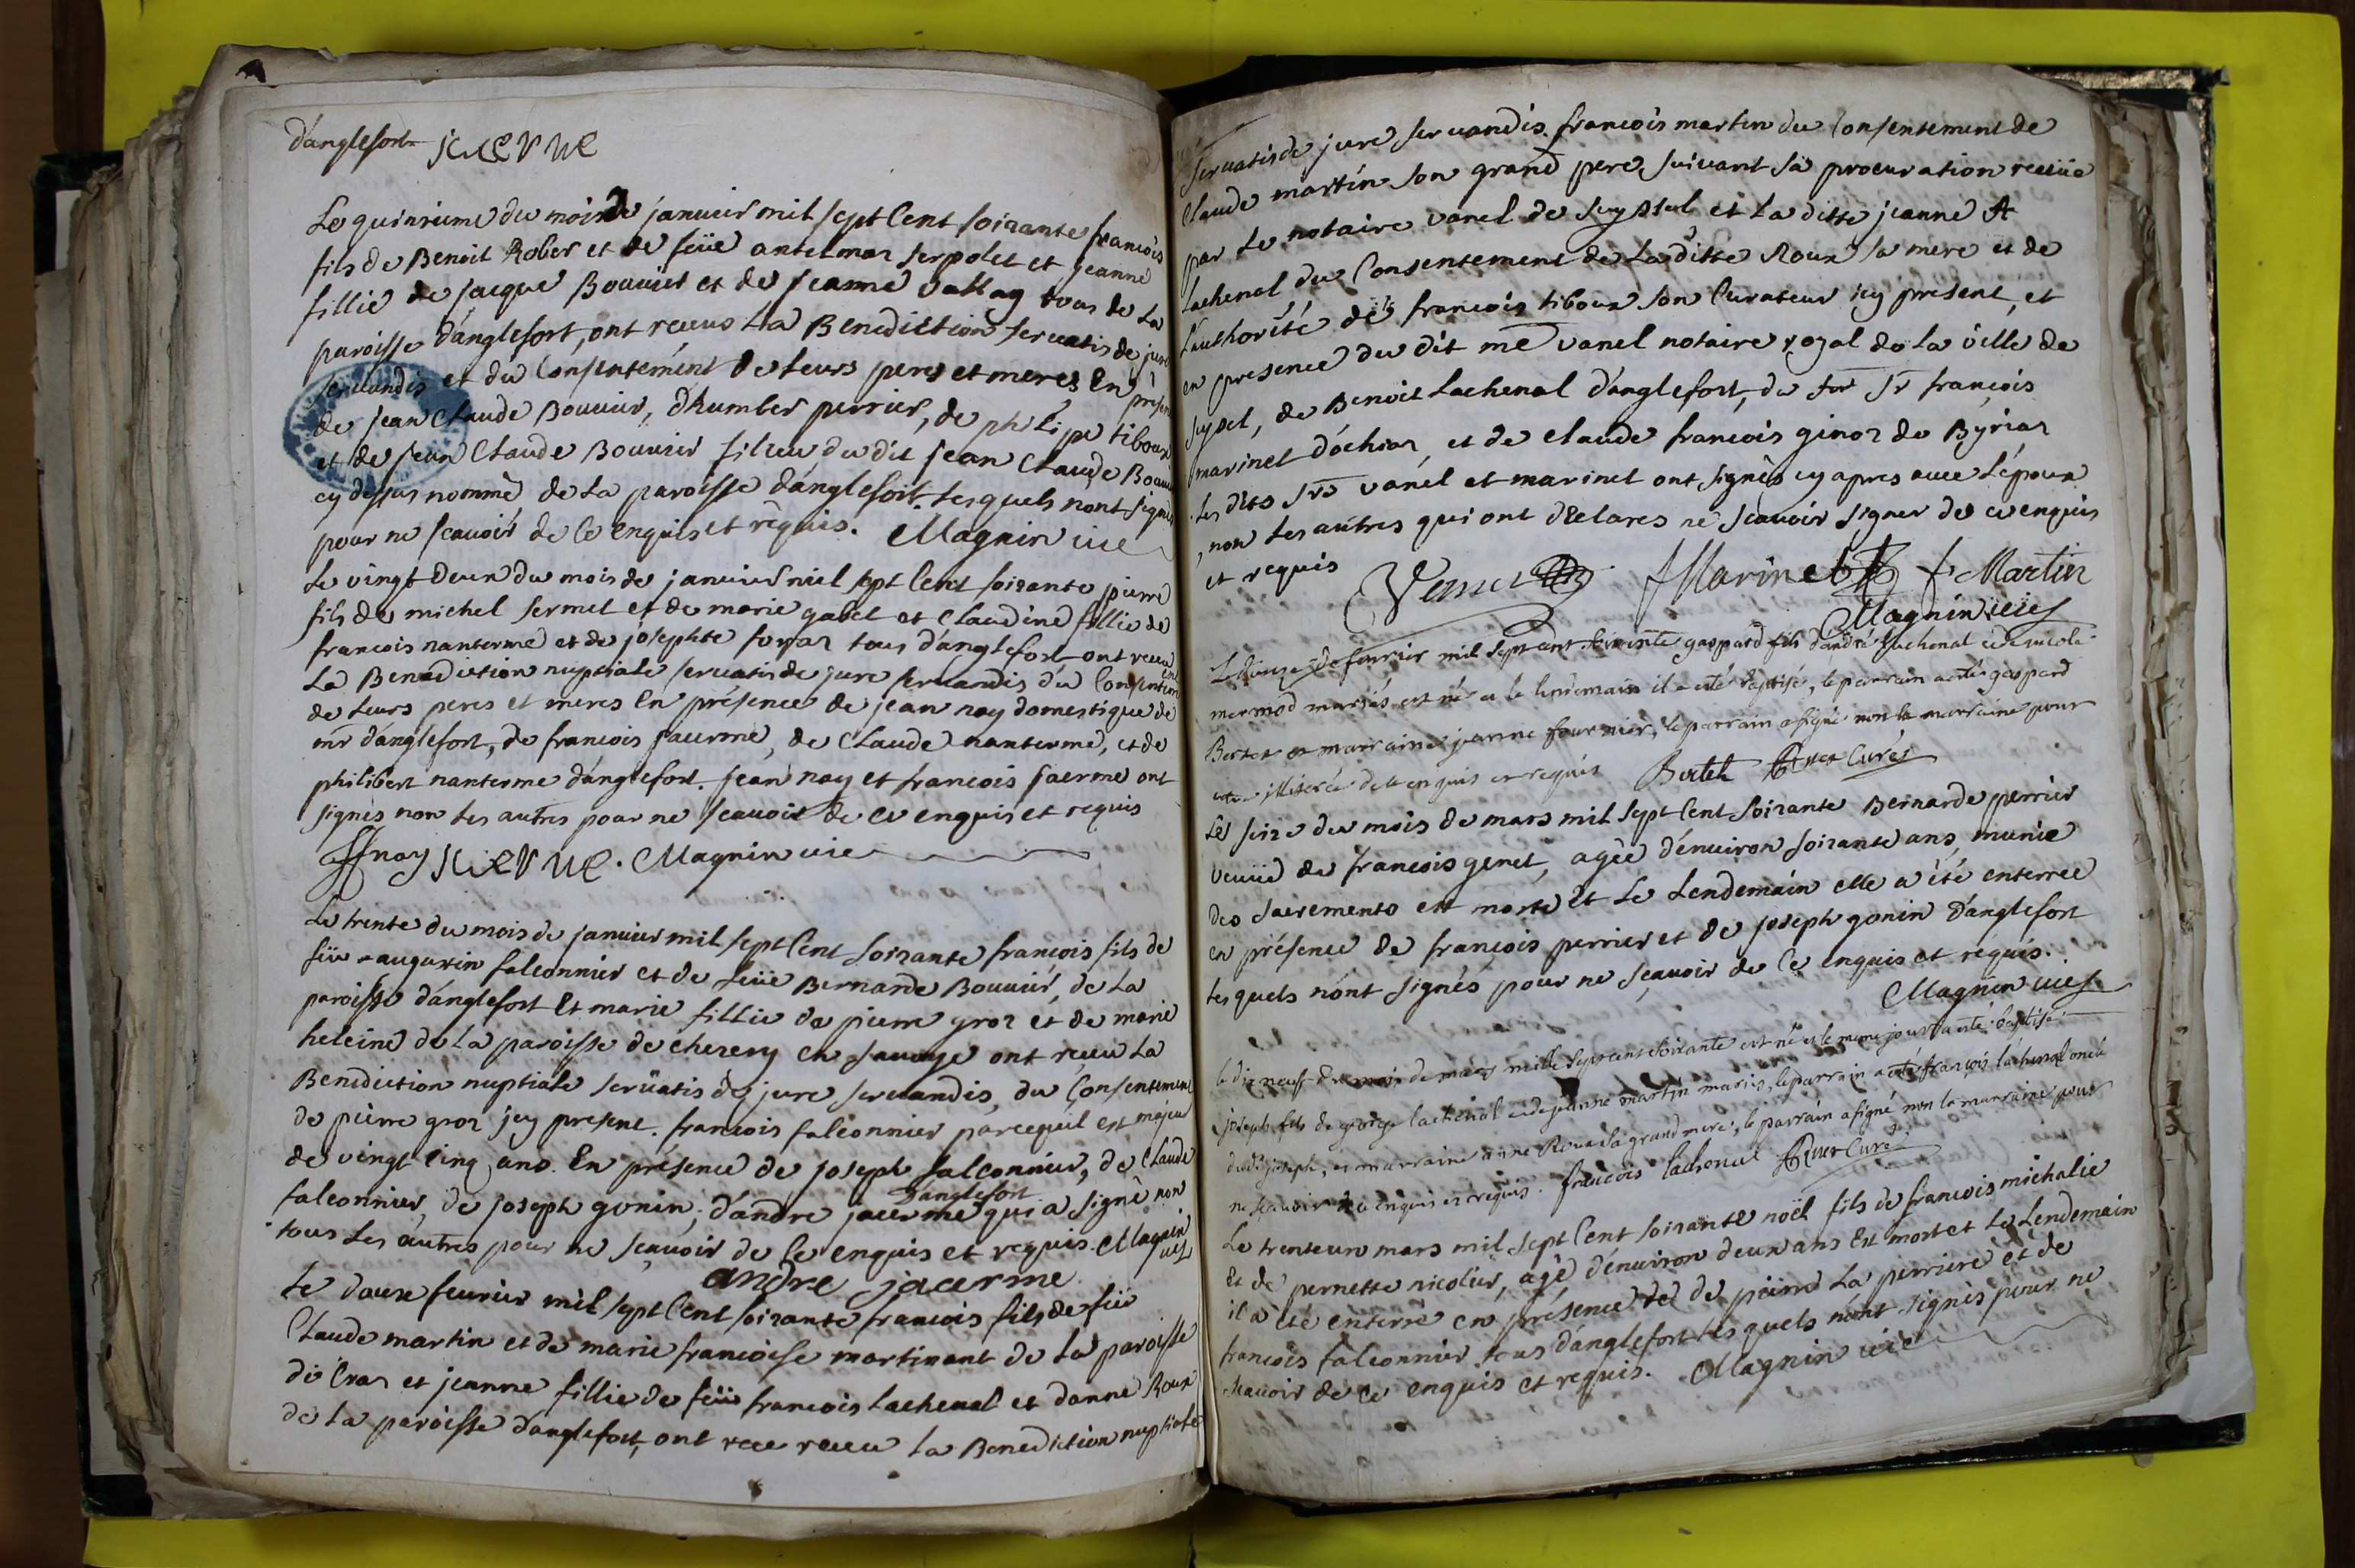 d'anglefort
Le quinrieme du mois de janvier mil sept Cent soixante francois
fils de Benoit Rober et de feüe antelmaz serpolet et jeanne
fillie de jacque Bouvier et de jeanne vallay tous de La
paroisse d'anglefort, ont receus La Benediction servatis de jure
servandis et du Consentement de Leurs peres et meres En présen
de jean Claude Bouvier, d'humber perrier, de philipe tiboux
et de jean Claude Bouvier filieu du dit jean Claude Bouvier
cy dessus nommé de La paroisse d'anglefort. Lesquels n'ont signés
pour ne scavoir de Ce enquis et réquis. Magnin vie
Le vingt Deux du mois de janvier mil sept Cent soixante pierre
fils de michel sermet et de marie gabel et Claudine fillie de
francois nanterme et de josephte foraz tous d'anglefort ont receu
La Benediction nuptiale servatis de jure servandis du Consentement
de Leurs peres et meres En présence de jean noy domestique de
mr d'anglefort, de francois jacerme, de Claude nanterme, et de
philibert nanterme d'anglefort. jean noy et francois jaerme ont
signés non Les autres pour ne scavoir de Ce enquis et requis
noy Magnin vie
Le trente du mois de janvier mil sept Cent soixante francois fils de
füe augustin falconnier et de feüe Bernarde Bouvier, de La
paroisse d'anglefort Et marie fillie de pierre groz et de marie
heleine de La paroisse de chesery en Savoye ont receu La
Benediction nuptiale servatis de jure servandis, du Consentement
de pierre groz jcy present. francois falconnier parcequ'il est majeur
de vingt Cinq ans. En présence de joseph falconnier, de Claude
falconnier, de joseph gonin, d'andre jacerme d'anglefort qui a signé non
tous Les autres pour ne scavoir de Ce enquis et requis Magnin
vie
andre jacerme
Le douze fevrier mil sept Cent soixante francois fils de füe
Claude martin et de marie francoise martinant de La paroisse
de Craz et jeanne fillie de füe francois Lachenal et d'anne Roux
de La paroisse d'anglefort, ont rece receu La Benediction nuptiale
servatis de jure servandis. francois martin du Consentement de
Claude martin son grand pere, suivant sa procuration receüe
par Le notaire vanel de Seyssel et La ditte jeanne
Lachenal du Consentement de La ditte Roux sa mere et de
L'authorité de francois tiboux son Curateur jcy present, et
en presence du dit me vanel notaire royal de La ville de
seyssel, de Benoit Lachenal d'anglefort, du sr francois
marinet d'ochiaz, et de claude francois ginoz de Byriaz
Les dits srs vanel et marinet ont signés cy apres avec L'époux
non Les autres qui ont déclarés ne scavoir signer de ce enquis
et requis Vanel Marinet f. Martin
Magnin vie
Le douze de fevrier mil sept cent soixante gaspard fils d'andré Lachenal et de nicole
mermod mariés est né et le lendemain il a esté baptisé, le parrain a esté gaspard
Bertet et marraine jeanne fournier, le parrain a signé non la marraine pour
être illiterée de ce enquis et requis Bertet Curé
Le seize du mois de mars mil sept Cent soixante Bernarde perrier
veuve de francois genet, agée d'environ soixante ans, munie
des sacrements est morte Et Le Lendemain elle a été enterrée
en présence de francois perrier et de joseph gonin d'anglefort
Lesquels n'ont signés pour ne scavoir de Ce enquis et réquis.
Magnin vie
le dix neuf du mois de mars mille sept cent soixante est né et le meme jour a esté baptisé
joseph fils de george lachenal et de jeanne martin mariés, le parrain a esté françois lachenal oncle
dudit joseph, et marraine anne Roux sa grand mere, le parrain a signé non la marraine pour
ne scavoir de ce enquis et requis. francois lachenal Curé
Le trenteun mars mil sept Cent soixante noël fils de francois michalie
Et de pernette nicolier, agé d'environ deux ans Est mort et Le Lendemain
il a été enterré en présence de de pierre La perriere et de
francois falconnier tous d'anglefort Lesquels n'ont signés pour ne
scavoir de Ce enquis et requis. Magnin vie